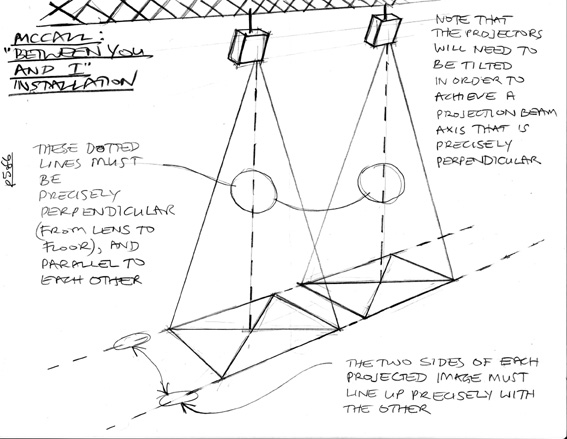 McCALL:
"BETWEEN YOU
AND I"
INSTALLATION
NOTE THAT
THE PROJECTORS
WILL NEED TO
BE TILTED
IN ORDER TO
ACHIEVE A
PROJECTION BEAM
AXIS THAT IS
PRECISELY
PERPENDICULAR
THESE DOTTED
LINES MUST
BE
PRECISELY
PERPENDICULAR
(FROM LENS TO
FLOOR), AND
PARALLEL TO
EACH OTHER
THE TWO SIDES OF EACH
PROJECTED IMAGE MUST
LINE UP PRECISELY WITH
THE OTHER